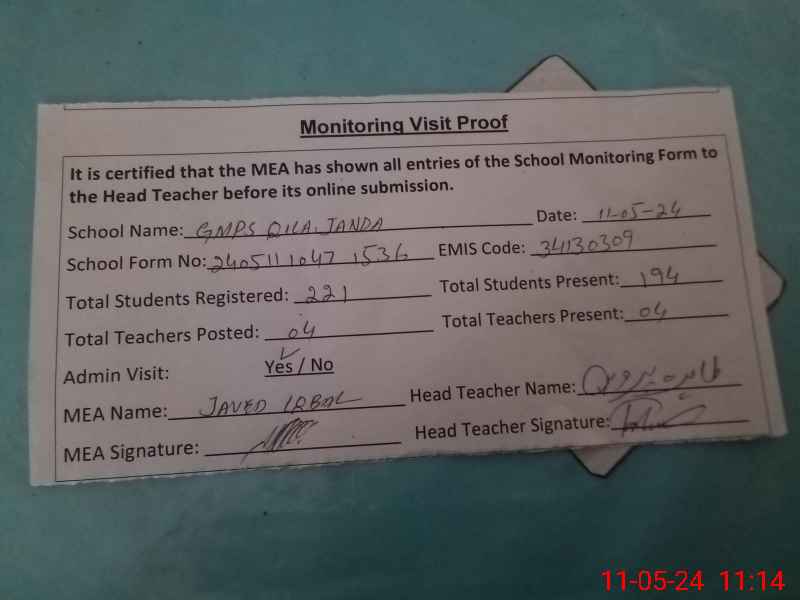 Monitoring Visit Proof
It is certified that the MEA has shown all entries of the School Monitoring Form to
the Head Teacher before its online submission.
School Name: GMPS QILA JANDA Date: 11-05-24
School Form No: 2405111047 1536 EMIS Code: 34130309
Total Students Registered: 221 Total Students Present: 194
Total Teachers Posted: 04 Total Teachers Present: 04
Admin Visit: Yes / No
MEA Name: JAVED IQBAL Head Teacher Name: طاہرہ پروین
MEA Signature: Head Teacher Signature:
11-05-24 11:14